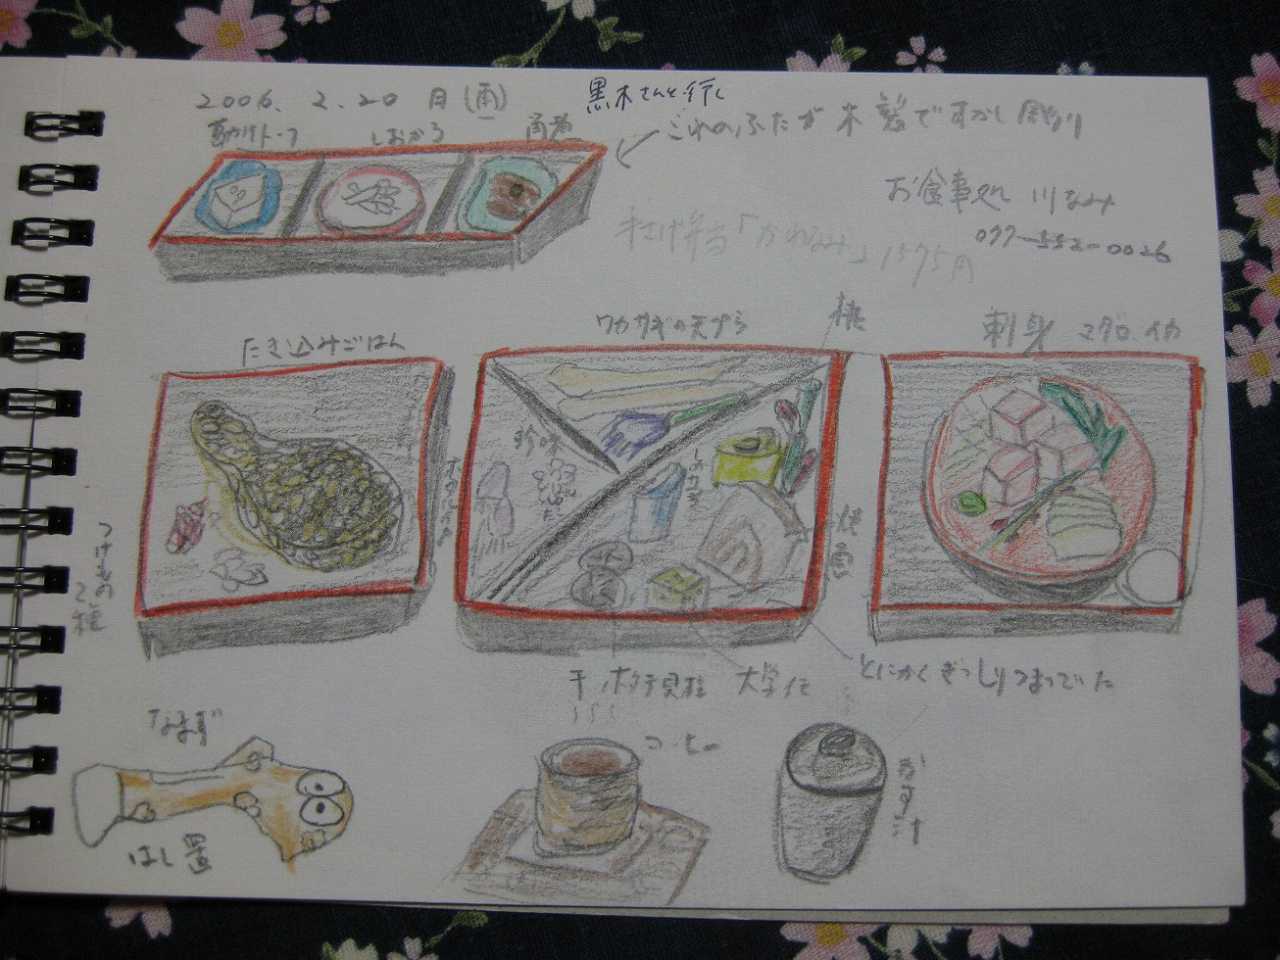 2006.2.20 月(雨)
黒木さんと行く
これのふたが木製ですかし彫り
しおから
お食事処 川なみ
077-552-0026
手さげ弁当「かわなみ」1575円
たき込みごはん
ワカサギの天プラ
桃
刺身 マグロ、イカ
珍味
つけもの
2種
干ホタテ貝柱
大学イモ
とにかくぎっしりつまっていた
なまず
はし置
コーヒー